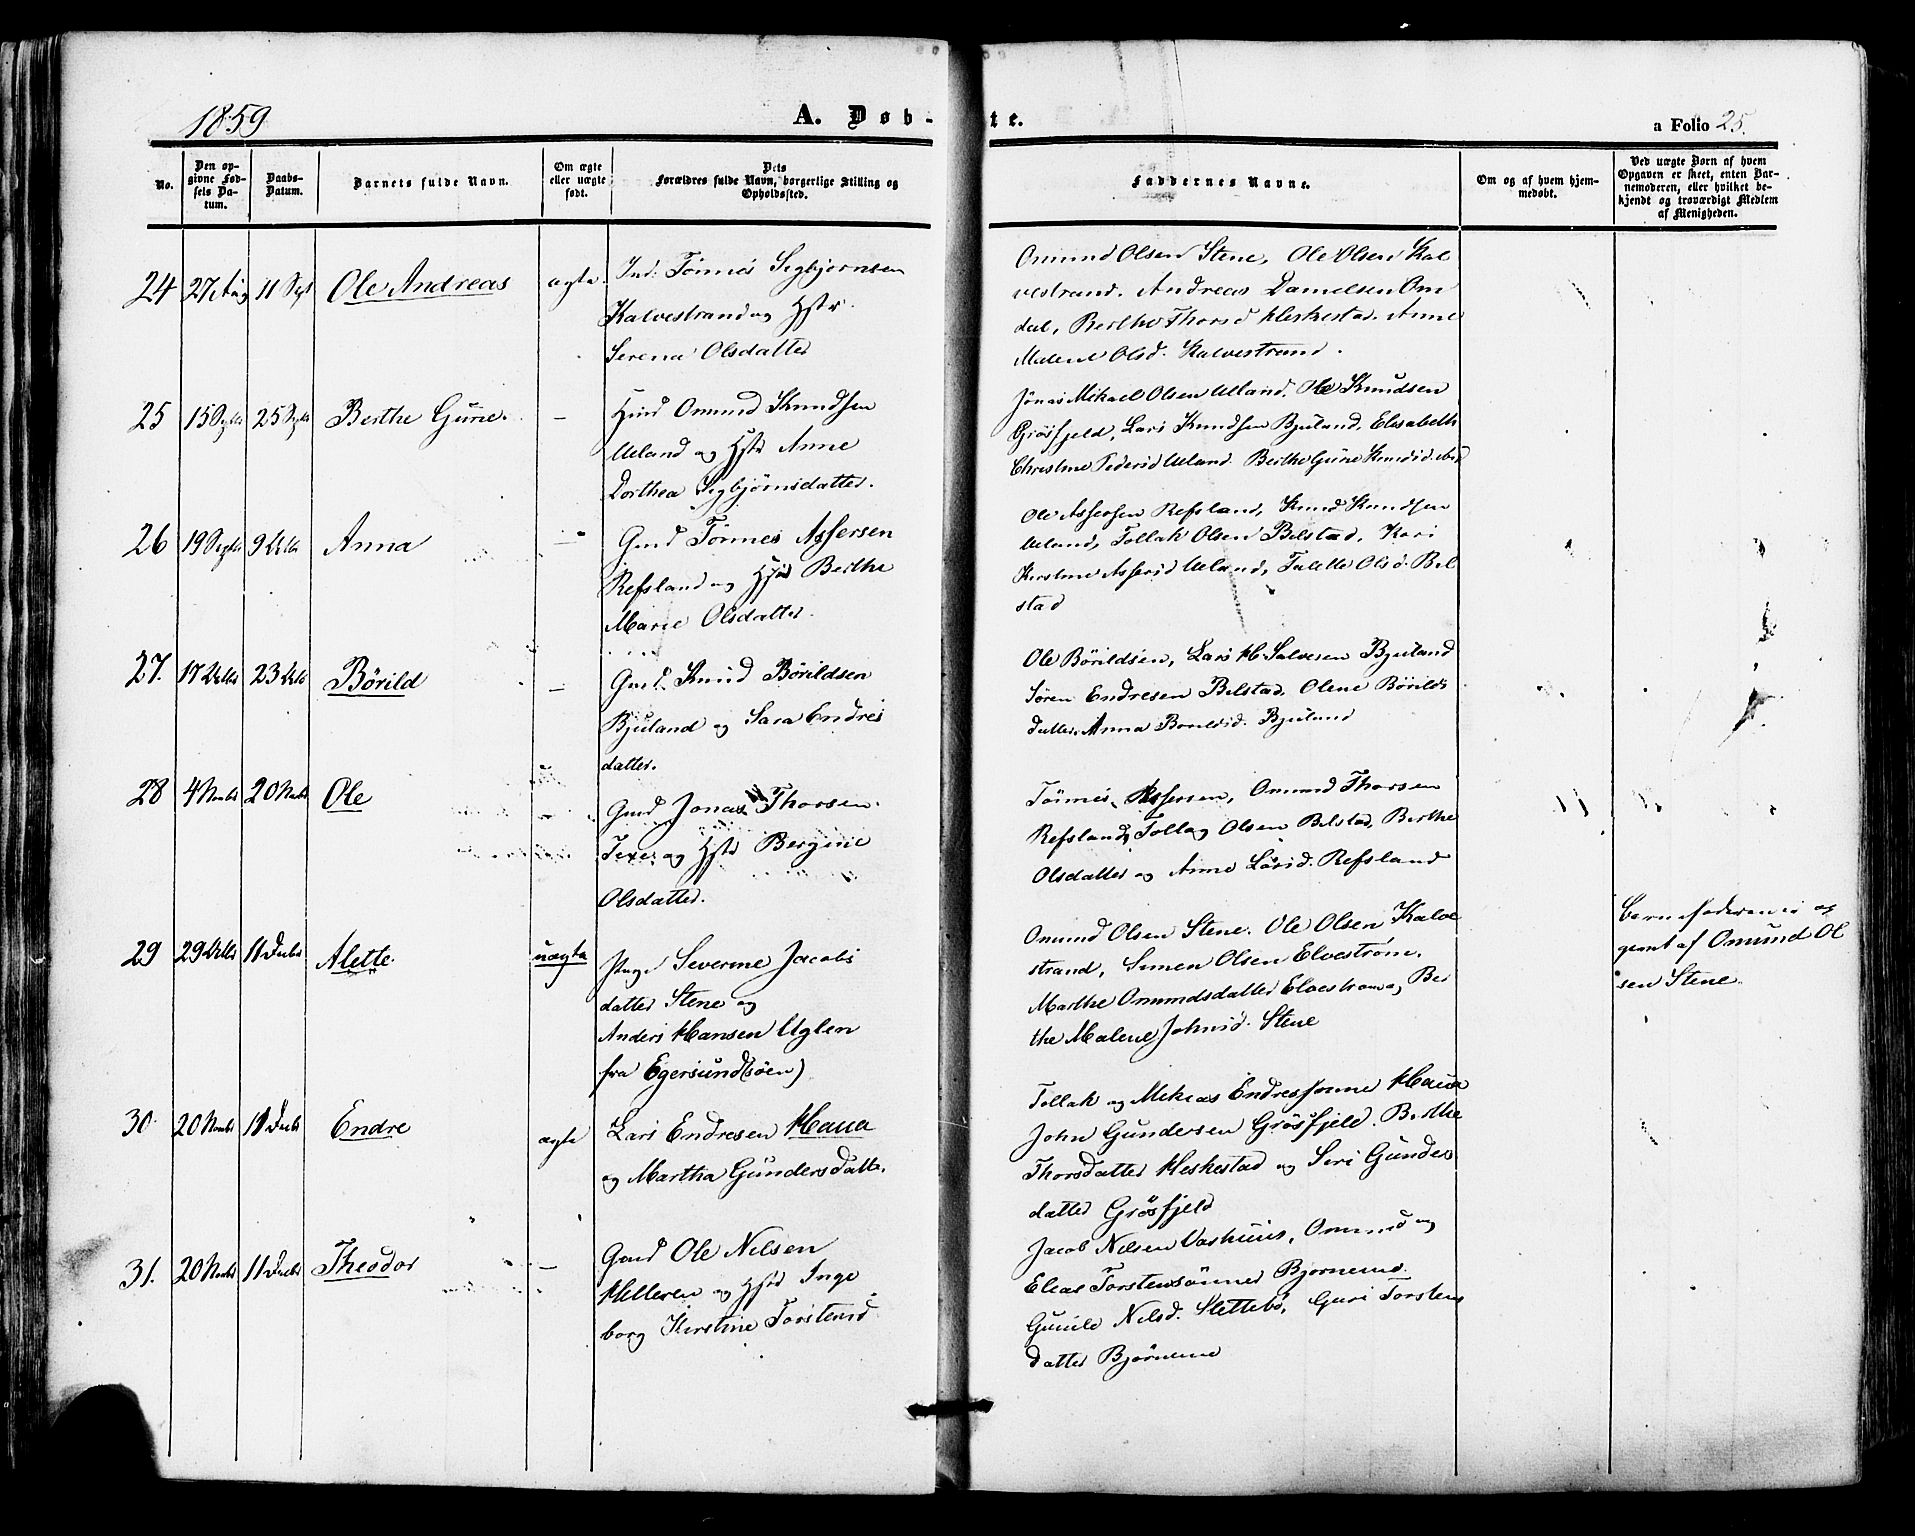 1859
A. Døb-
te.
a Folio 25.
No.
Den op-
givne Fød-
sels Da-
tum.
Daabs-
Datum.
Barnets fulde Navn.
Om ægte
eller uægte
født.
Dets
Forældres fulde Navn, borgerlige Stilling og
Opholdssted.
Faddernes Navne.
Om og af hvem hjem-
medøbt.
Ved uægte Børn af hvem
Opgaven er skeet, enten Bar-
nemoderen, eller hvilket be-
kjendt og troværdigt Medlem
af Menigheden.
24 27 Aug 11 Sept Ole Andreas ægte
Ind: Tönnes Segbjørnsen
Kalvestrand og Hstr
Serena Olsdatter
Omund Olsen Stene, Ole Olsen Kal
vestrand. Andreas Danielsen Om
dal, Berthe Thorsd Heskestad. Anne
Malene Olsd. Kalvestrand.
25 15 Septbr 25 Septbr Berthe Gurie. —
Omund Knudsen
Ueland og Hstr Anne
Dorthea Segbjørnsdatter.
Jonas Mikael Olsen Ueland, Ole Knudsen
Grösfjeld, Lars Knudsen Bjuland, Elisabeth
Christine Pedersd Ueland. Berthe Gurie Knudsd.
26 19 Septbr 9 Anna —
Gmd Tönnes Assersen
Refsland og Hstr Berthe
Marie Olsdatter.
Ole Assersen Refsland, Knud Knudsen
Ueland, Tollak Olsen Bilstad, Kari
Kirstine Assersd Ueland, Talette Olsd. Bil
stad
27. 17 23 Börild —
Gmd. Knud Börildsen
Bjuland og Sara Endres
datter.
Ole Börildsen, Lars H. Salvesen Bjuland
Sören Endresen Bilstad, Olene Börilds
datter, Anna Borildsd. Bjuland
28 4 Novbr 20 Novbr Ole —
Gmd Jonas Thorsen
og Hstr Bergine
Olsdatter.
Tönnes Assersen, Omund Thorsen
Refsland, Tollag Olsen Bilstad, Berthe
Olsdatter og Anne Larsd. Refsland
29 29 11 Decbr Alette. uægte
Pige Severine Jacobs
datter Stene og
Anders Hansen Uglen
fra Egersund(søen)
Omund Olsen Stene. Ole Olsen Kalve
strand, Simen Olsen Elvestrøm,
Marthe Omundsdatter Elvestrøm og Ber
the Malene Johnsd. Stene
Barnefaderen er op
givet af Omund Ol
sen Stene.
30. 20 Novbr 11 Decbr Endre ægte
Lars Endresen Haua
og Martha Gundersdatter.
Tollak og Mikias Endressönne Haua
John Gundersen Grösfjeld. Berthe
Thorsdatter Heskestad og Siri Gunders
datter Grösfjeld
31. 20 Novbr 11 Decbr Theodor —
Gmd Ole Nilsen
Helleren og Hstr Inge
borg Kirstine Torstensd
Jacob Nilsen Vashuus, Omund og
Elias Torstensönner Bjørnemo.
Gunild Nilsd. Slettebö, Guri Torstens
datter Bjørnemo